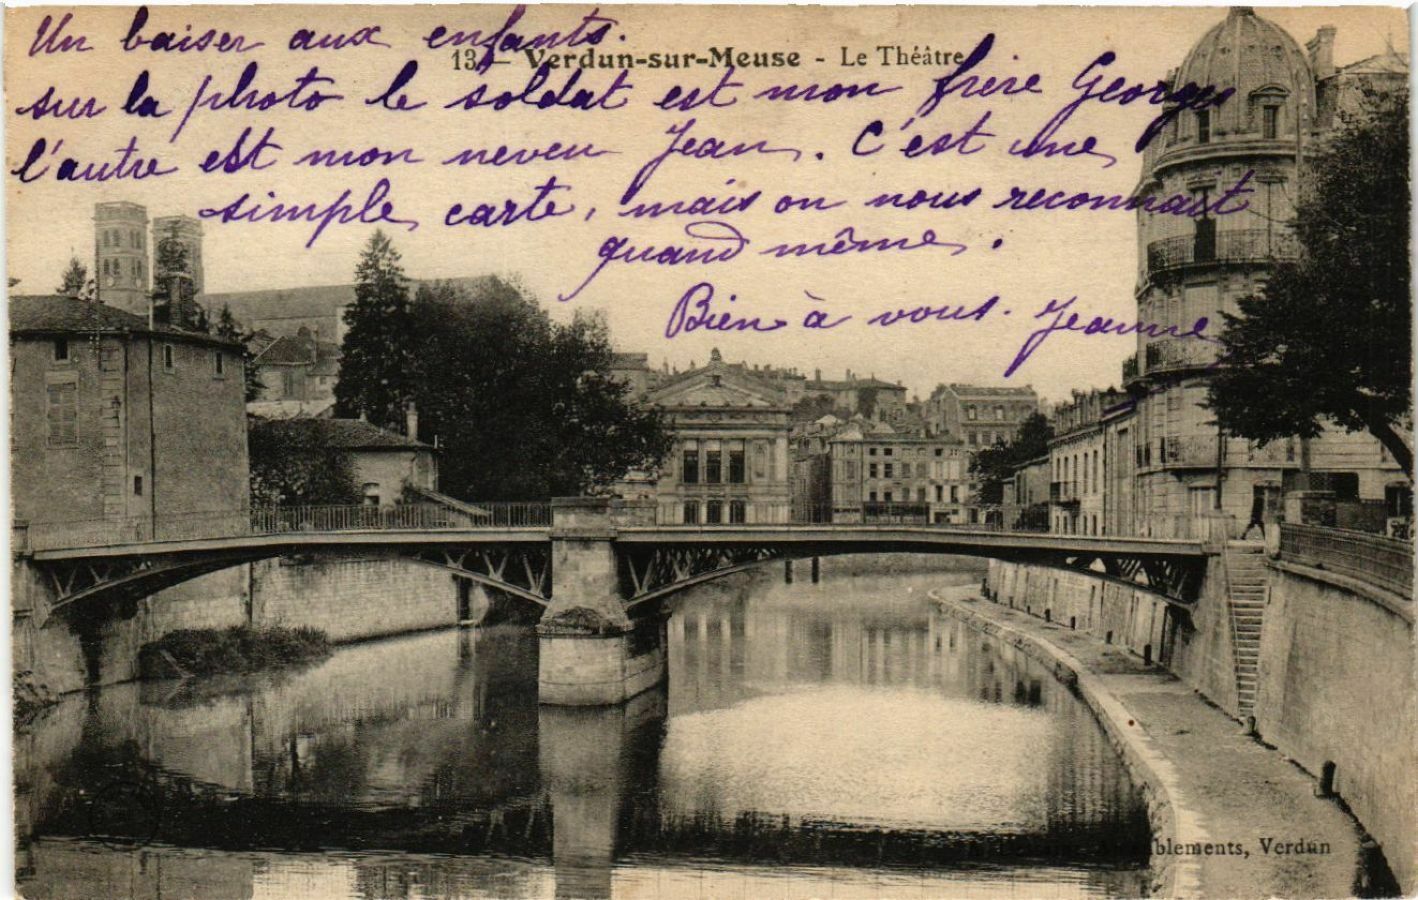 Un baiser aux enfants.
13 — Verdun-sur-Meuse - Le Théâtre
sur la photo le soldat est mon frère Georges
l'autre est mon neveu Jean. C'est une
simple carte, mais on nous reconnait
quand même.
Bien à vous. Jeanne
Ameublements, Verdun